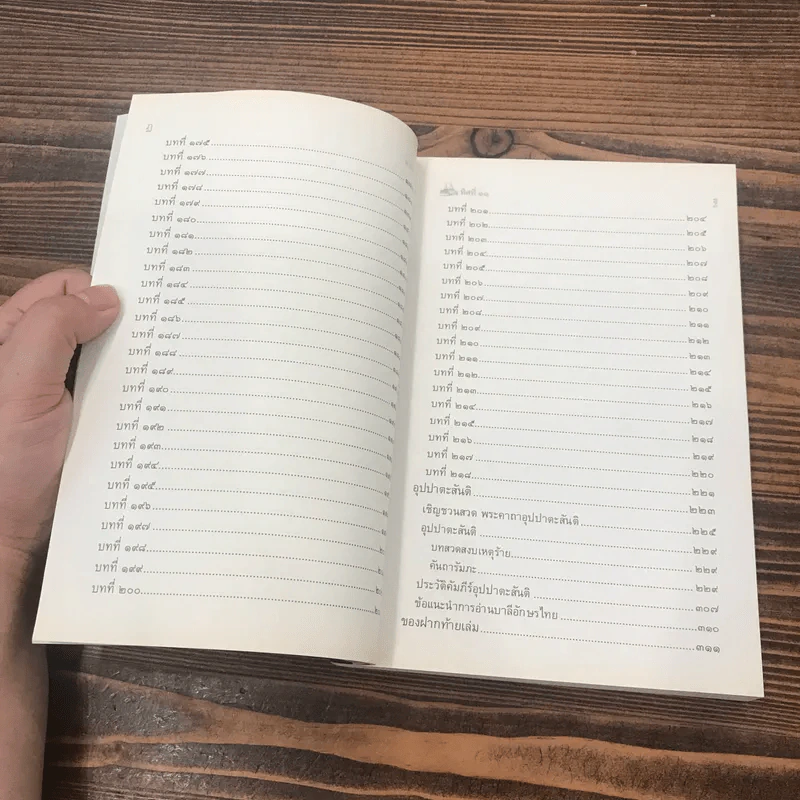 บทที่ ๑๗๕
บทที่ ๑๗๖
บทที่ ๑๗๗
บทที่ ๑๗๘
บทที่ ๑๗๙
บทที่ ๑๘๐
บทที่ ๑๘๑
บทที่ ๑๘๒
บทที่ ๑๘๓
บทที่ ๑๘๔
บทที่ ๑๘๕
บทที่ ๑๘๖
บทที่ ๑๘๗
บทที่ ๑๘๘
บทที่ ๑๘๙
บทที่ ๑๙๐
บทที่ ๑๙๑
บทที่ ๑๙๒
บทที่ ๑๙๓
บทที่ ๑๙๔
บทที่ ๑๙๕
บทที่ ๑๙๖
บทที่ ๑๙๗
บทที่ ๑๙๘
บทที่ ๑๙๙
บทที่ ๒๐๐
บทที่ ๒๐๑ ๒๐๔
บทที่ ๒๐๒ ๒๐๕
บทที่ ๒๐๓ ๒๐๖
บทที่ ๒๐๔ ๒๐๗
บทที่ ๒๐๕ ๒๐๘
บทที่ ๒๐๖ ๒๐๙
บทที่ ๒๐๗ ๒๑๐
บทที่ ๒๐๘ ๒๑๑
บทที่ ๒๐๙ ๒๑๒
บทที่ ๒๑๐ ๒๑๓
บทที่ ๒๑๑ ๒๑๔
บทที่ ๒๑๒ ๒๑๕
บทที่ ๒๑๓ ๒๑๖
บทที่ ๒๑๔ ๒๑๗
บทที่ ๒๑๕ ๒๑๘
บทที่ ๒๑๖ ๒๑๙
บทที่ ๒๑๗ ๒๒๐
บทที่ ๒๑๘ ๒๒๑
อุปปาตะสันติ ๒๒๓
เชิญชวนสวด พระคาถาอุปปาตะสันติ ๒๒๕
อุปปาตะสันติ ๒๒๙
บทสวดสงบเหตุร้าย ๒๒๙
คันถารัมภะ ๒๒๙
ประวัติคัมภีร์อุปปาตะสันติ ๓๐๗
ข้อแนะนำการอ่านบาลีอักษรไทย ๓๑๐
ของฝากท้ายเล่ม ๓๑๑